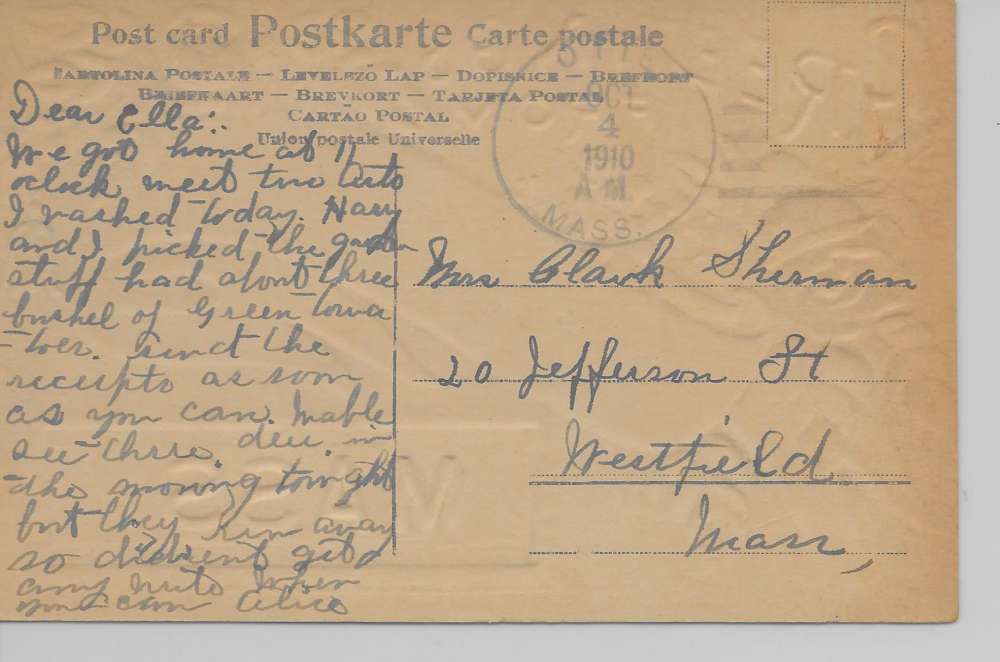 Post card Postkarte Carte postale
CARTOLINA POSTALE — LEVELEZŐ LAP — DOPISNICE — BREFKORT
BRIEFKAART — BREVKORT — TARJETA POSTAL
CARTÃO POSTAL
Union postale Universelle
OCT
4
1910
A M.
MASS.
Dear Ella:.
We got home at 11
oclock meet two Auto
I washed today. Harry
and I picked the garden
stuff had about three
bushel of Green toma
-toes. send the
receipts as soon
as you can. Mable
see three. deer. in
the mowing tonight
but they run away
so dident get
any Write When
you can Alice
Mrs Clark Sherman
20 Jefferson St
Westfield
Mass,